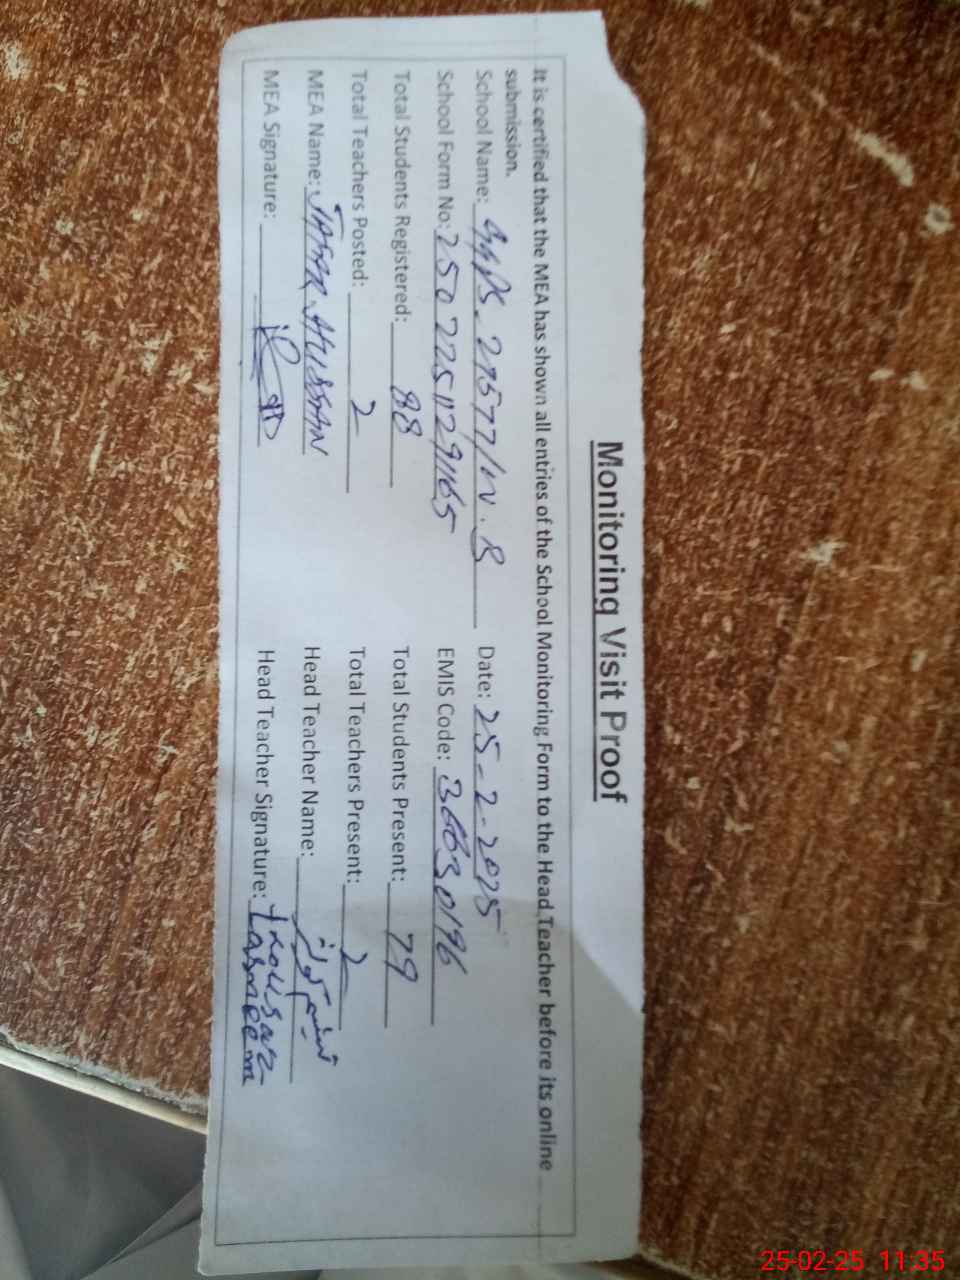 Monitoring Visit Proof
It is certified that the MEA has shown all entries of the School Monitoring Form to the Head Teacher before its online
submission.
School Name: Date: 25-2-2025
School Form No: EMIS Code: 36630196
Total Students Registered: 88 Total Students Present: 79
Total Teachers Posted: 2 Total Teachers Present: 2
MEA Name: JAFAR HUSSAIN Head Teacher Name:
MEA Signature: Head Teacher Signature: Tasneem
25-02-25 11:35